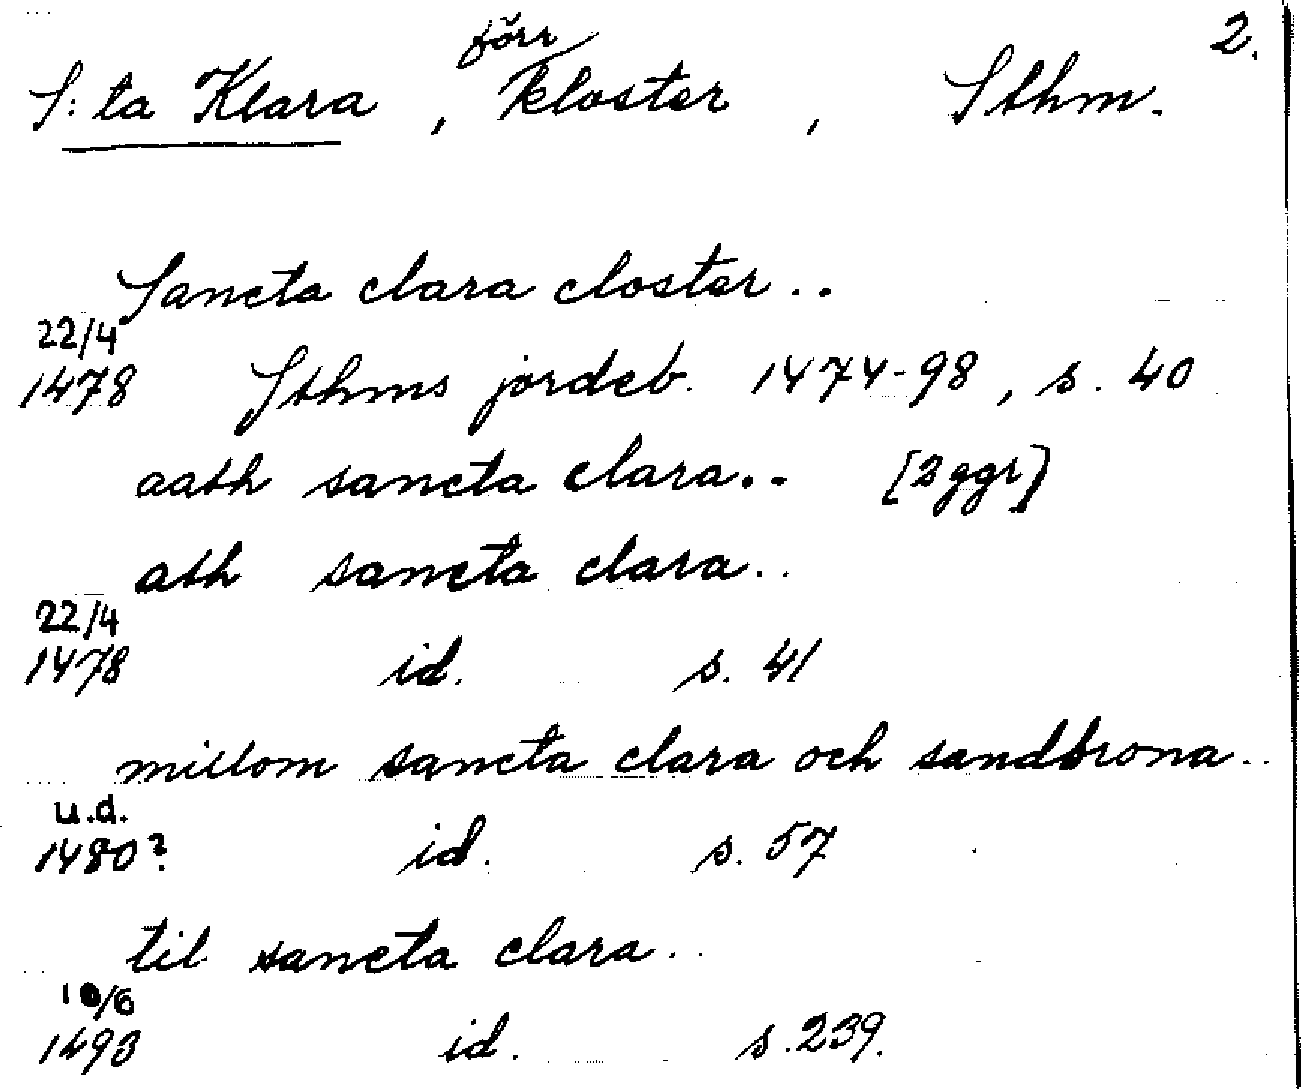 2.
förr
S:ta Klara, kloster, Sthm.
Sancta clara closter..
22/4
1478 Sthms jordeb. 1474-98, s. 40
aath sancta clara.. [2 ggr]
ath sancta clara..
22/4
1478 id. s. 41
millom sancta clara och sandbrona..
u.d.
1480? id. s. 57
til sancta clara..
1493 id. s. 239.